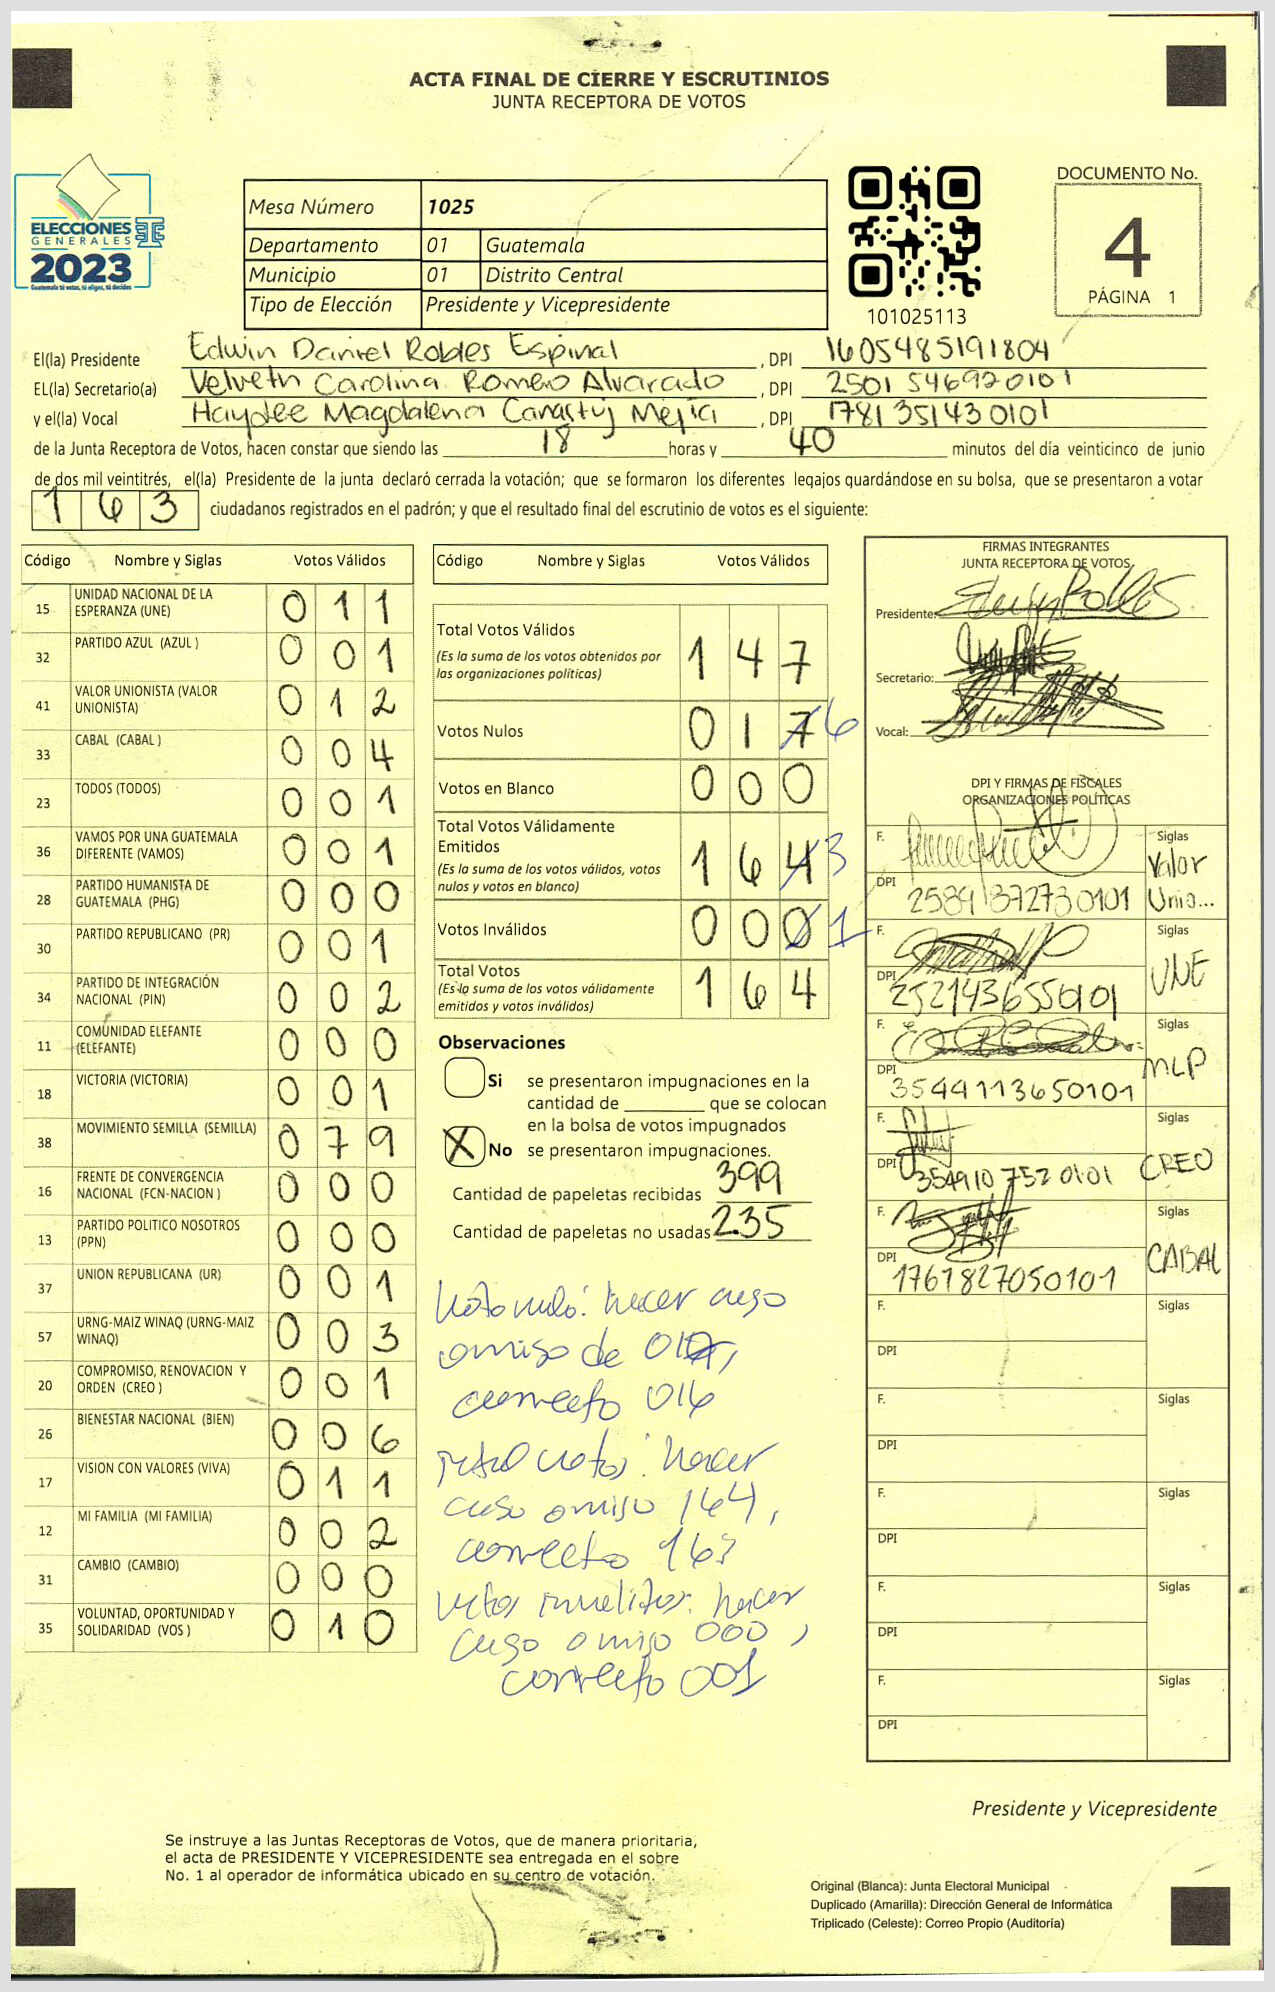 ACTA FINAL DE CIERRE Y ESCRUTINIOS
JUNTA RECEPTORA DE VOTOS
ELECCIONES
GENERALES
2023
Guatemala tú votas, tú eliges, tú decides
Mesa Número 1025
Departamento 01 Guatemala
Municipio 01 Distrito Central
Tipo de Elección Presidente y Vicepresidente
101025113
DOCUMENTO No.
4
PÁGINA 1
El(la) Presidente Edwin Daniel Robles Espinal , DPI 1605485191804
EL(la) Secretario(a) Velveth Carolina Romero Alvarado , DPI 2501546920101
y el(la) Vocal Haydee Magdalena Canastuj Mejía , DPI 1781351430101
de la Junta Receptora de Votos, hacen constar que siendo las 18 horas y 40 minutos del día veinticinco de junio
de dos mil veintitrés, el(la) Presidente de la junta declaró cerrada la votación; que se formaron los diferentes legajos guardándose en su bolsa, que se presentaron a votar
163 ciudadanos registrados en el padrón; y que el resultado final del escrutinio de votos es el siguiente:
Código Nombre y Siglas Votos Válidos
15 UNIDAD NACIONAL DE LA ESPERANZA (UNE) 011
32 PARTIDO AZUL (AZUL ) 001
41 VALOR UNIONISTA (VALOR UNIONISTA) 012
33 CABAL (CABAL ) 004
23 TODOS (TODOS) 001
36 VAMOS POR UNA GUATEMALA DIFERENTE (VAMOS) 001
28 PARTIDO HUMANISTA DE GUATEMALA (PHG) 000
30 PARTIDO REPUBLICANO (PR) 001
34 PARTIDO DE INTEGRACIÓN NACIONAL (PIN) 002
11 COMUNIDAD ELEFANTE (ELEFANTE) 000
18 VICTORIA (VICTORIA) 001
38 MOVIMIENTO SEMILLA (SEMILLA) 079
16 FRENTE DE CONVERGENCIA NACIONAL (FCN-NACION ) 000
13 PARTIDO POLITICO NOSOTROS (PPN) 000
37 UNION REPUBLICANA (UR) 001
57 URNG-MAIZ WINAQ (URNG-MAIZ WINAQ) 003
20 COMPROMISO, RENOVACION Y ORDEN (CREO ) 001
26 BIENESTAR NACIONAL (BIEN) 006
17 VISION CON VALORES (VIVA) 011
12 MI FAMILIA (MI FAMILIA) 002
31 CAMBIO (CAMBIO) 000
35 VOLUNTAD, OPORTUNIDAD Y SOLIDARIDAD (VOS ) 010
Código Nombre y Siglas Votos Válidos
Total Votos Válidos 147
(Es la suma de los votos obtenidos por
las organizaciones políticas)
Votos Nulos 017 6
Votos en Blanco 000
Total Votos Válidamente
Emitidos 164 3
(Es la suma de los votos válidos, votos
nulos y votos en blanco)
Votos Inválidos 000 1
Total Votos 164
(Es la suma de los votos válidamente
emitidos y votos inválidos)
Observaciones
Si se presentaron impugnaciones en la
cantidad de ________ que se colocan
en la bolsa de votos impugnados
X No se presentaron impugnaciones.
Cantidad de papeletas recibidas 399
Cantidad de papeletas no usadas 235
Voto nulo: hacer caso
omiso de 017,
correcto 016
total votos: hacer
caso omiso 164,
correcto 163
votos invalidos: hacer
caso omiso 000,
correcto 001
FIRMAS INTEGRANTES
JUNTA RECEPTORA DE VOTOS
Presidente:
Secretario:
Vocal:
DPI Y FIRMAS DE FISCALES
ORGANIZACIONES POLÍTICAS
F. Siglas Valor Unio...
DPI 25891372730101
F. Siglas UNE
DPI 2521436550101
F. Siglas MLP
DPI 3544113650101
F. Siglas CREO
DPI 3549107520101
F. Siglas CABAL
DPI 1761827050101
F. Siglas
DPI
F. Siglas
DPI
F. Siglas
DPI
F. Siglas
DPI
F. Siglas
DPI
Presidente y Vicepresidente
Se instruye a las Juntas Receptoras de Votos, que de manera prioritaria,
el acta de PRESIDENTE Y VICEPRESIDENTE sea entregada en el sobre
No. 1 al operador de informática ubicado en su centro de votación.
Original (Blanca): Junta Electoral Municipal
Duplicado (Amarilla): Dirección General de Informática
Triplicado (Celeste): Correo Propio (Auditoría)